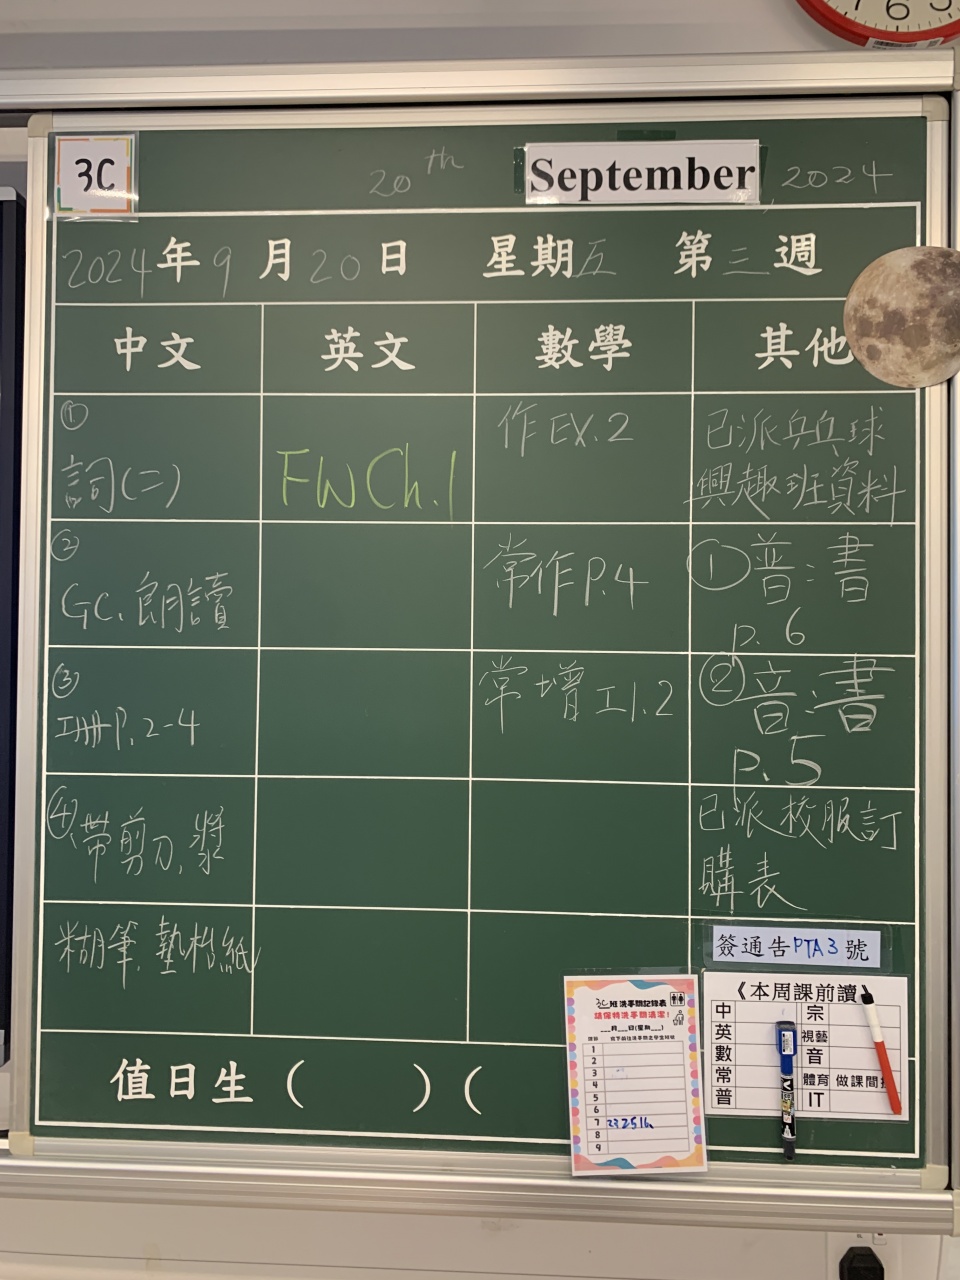 7 6 5
3C
20th September, 2024
2024年9月20日 星期五 第三週
中文 英文 數學 其他
①
詞(二)
FW Ch.1
作EX.2
已派乒乓球
興趣班資料
②
GC.朗讀
常作P.4
①普:書
p.6
③
工冊P.2-4
常增工1.2
②音:書
p.5
④帶剪刀.漿
已派校服訂
購表
糊筆.墊枱紙
簽通告PTA3號
值日生( )(
3C班洗手間記錄表
請保持洗手間清潔!
___月___日(星期___)
課節
1
2
3
4
5
6
7 23 25 16
8
9
《本周課前讀》
中 宗
英 視藝
數 音
常 體育 做課間
普 IT